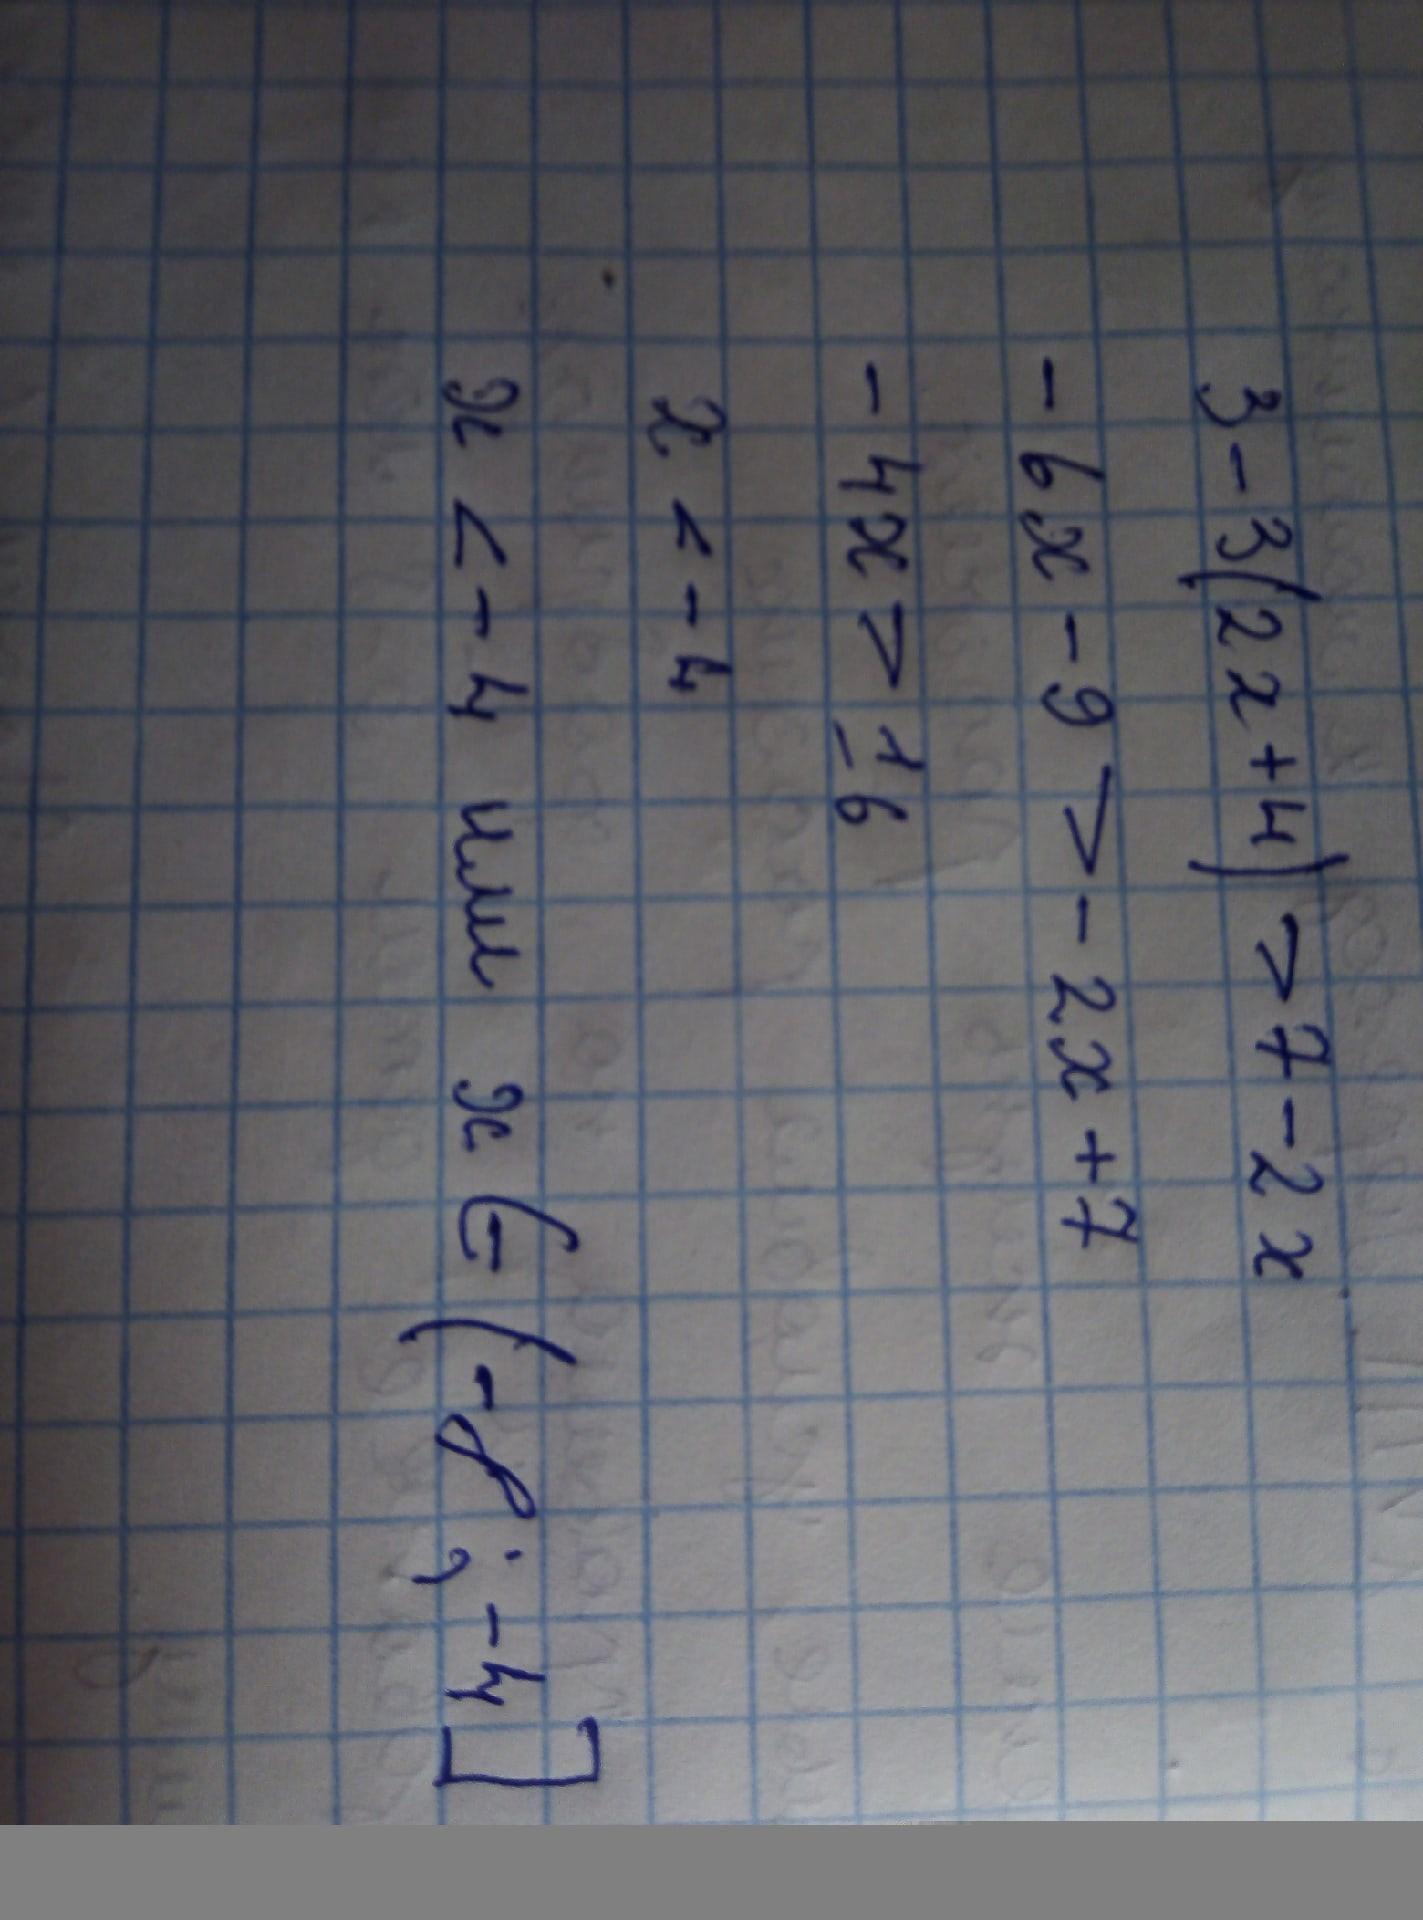 3-3(2x+4)>7-2x
-6x-9>-2x+7
-4x>16
x<-4
x<-4 или x∈(-∞;-4]